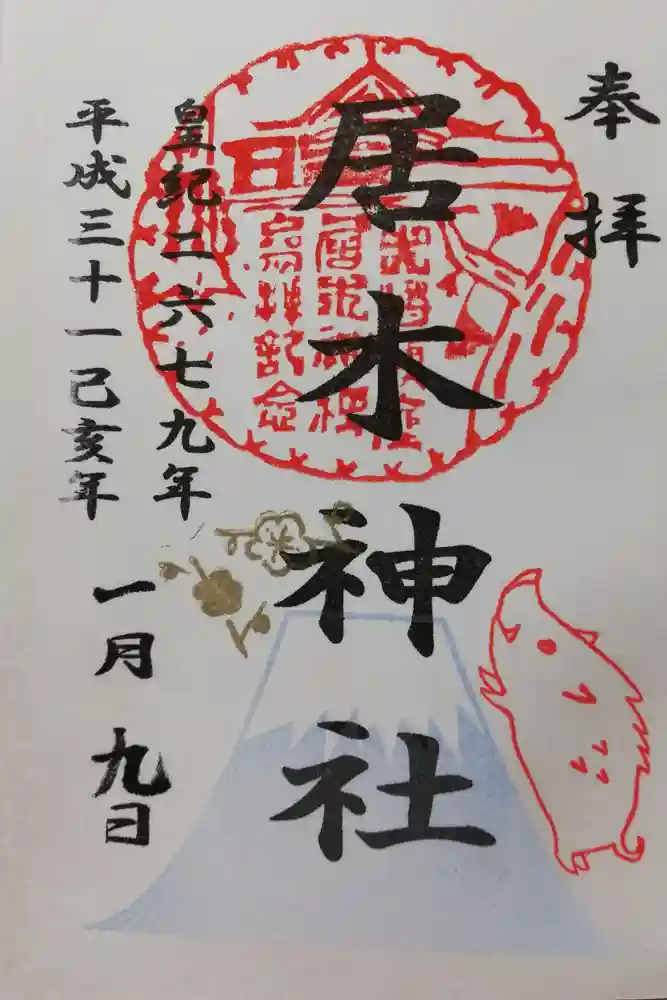 奉拝
居木神社
居木神社
参拝記念
皇紀二六七九年
平成三十一己亥年
一月九日